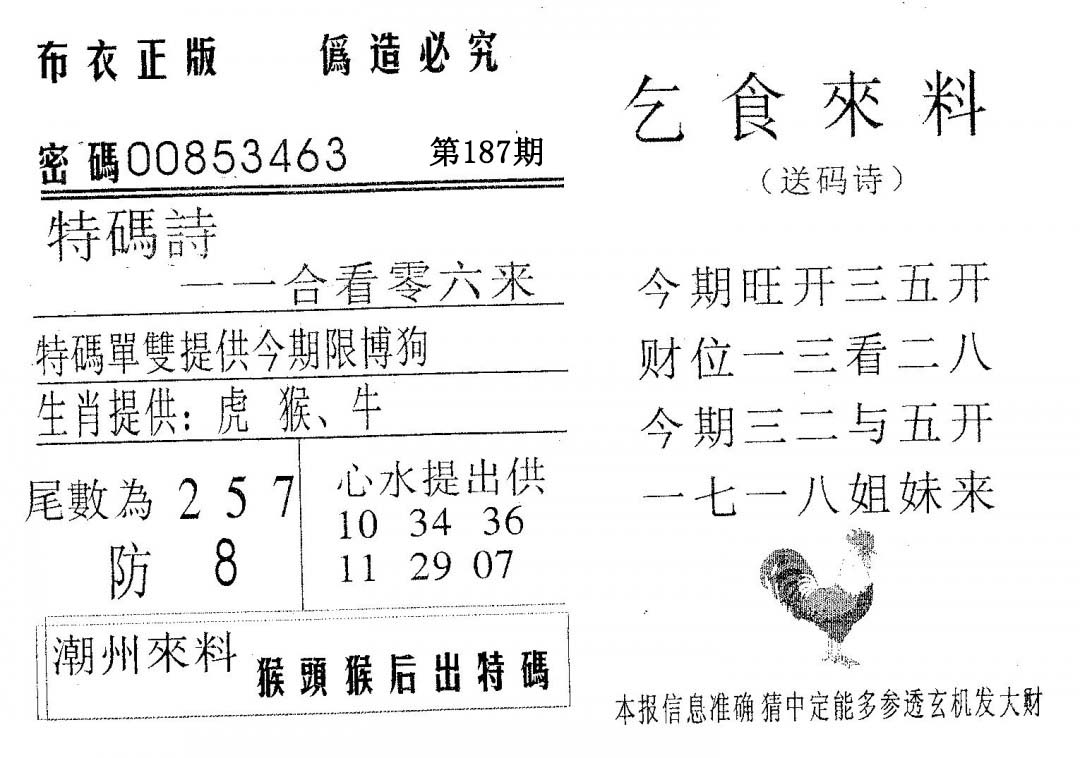 布衣正版 僞造必究
密碼00853463 第187期
特碼詩
一一合看零六来
特碼單雙提供今期限博狗
生肖提供：虎 猴、牛
尾數為 2 5 7
防 8
心水提出供
10 34 36
11 29 07
潮州來料 猴頭猴后出特碼
乞食來料
（送码诗）
今期旺开三五开
财位一三看二八
今期三二与五开
一七一八姐妹来
本报信息准确猜中定能多参透玄机发大财